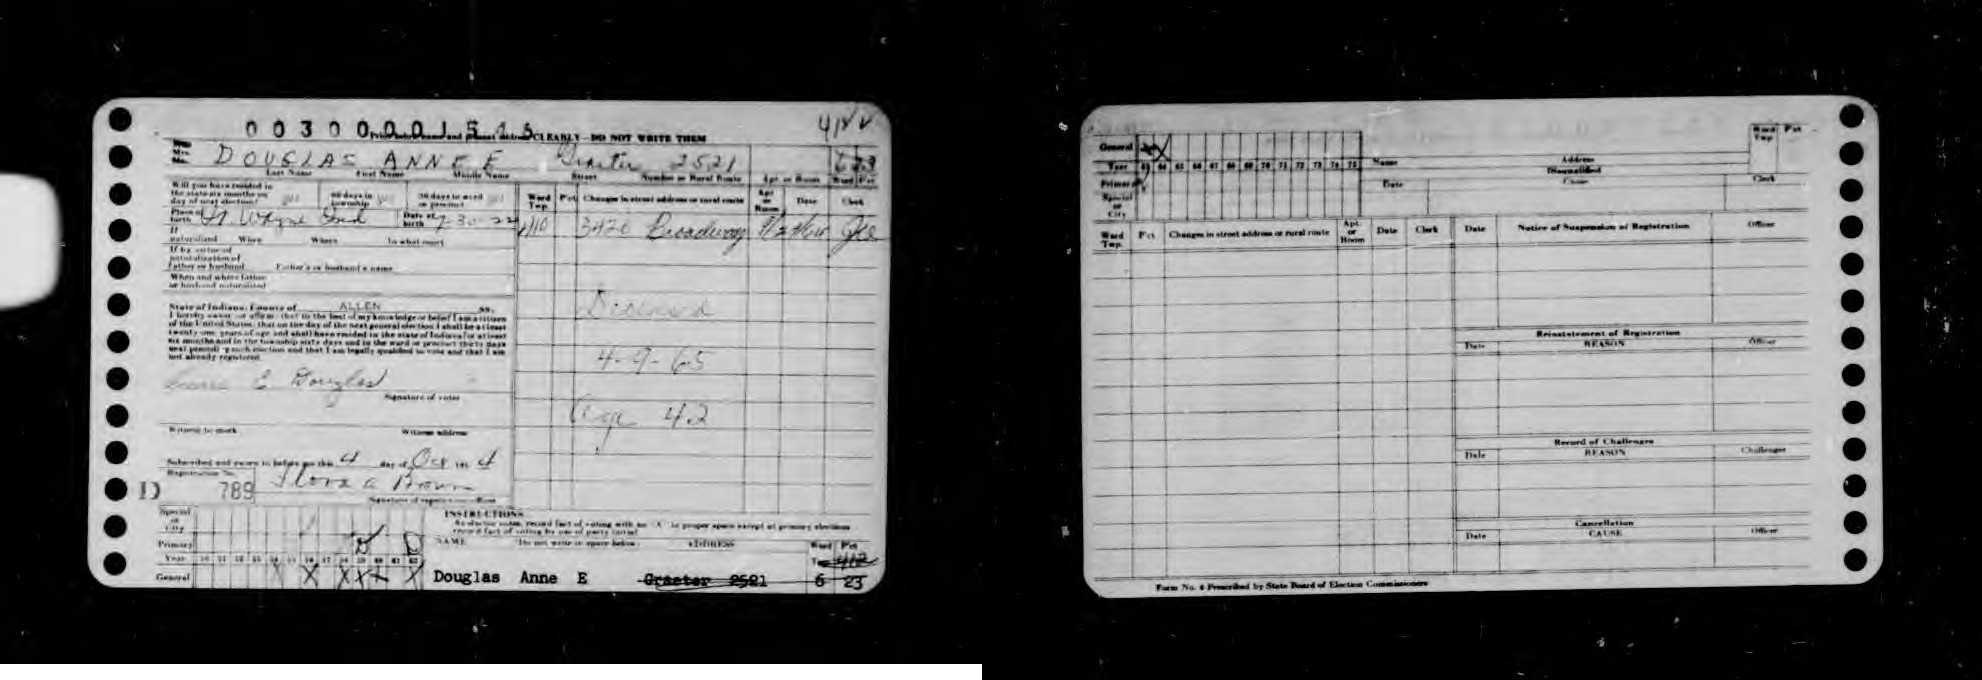 0 0 3 0 0 0 0 1 5 4 5
CLEARLY — DO NOT WRITE THEM
Mrs.
DOUGLAS ANNE E Graeter 2521 6 23
Last Name First Name Middle Name Street Number or Rural Route Apt. or Room Ward Pct.
Will you have resided in
the state six months on
day of next election? yes 60 days in township yes 30 days in ward or precinct yes
Ward Twp. Pct. Changes in street address or rural route Apt. or Room Date Clerk
Place of birth Ft. Wayne Ind Date of birth 7-30-22
3420 Broadway
If naturalized When Where In what court
If by virtue of
naturalization of
father or husband Father's or husband's name
When and where father
or husband naturalized
Deceased
4-9-65
Age 42
State of Indiana, County of ALLEN ss.
I hereby swear or affirm that to the best of my knowledge or belief I am a citizen
of the United States; that on the day of the next general election I shall be at least
twenty-one years of age and shall have resided in the state of Indiana for at least
six months and in the township sixty days and in the ward or precinct thirty days
next preceding such election and that I am legally qualified to vote and that I am
not already registered.
Anne E. Douglas
Signature of voter
Witness to mark Witness address
Subscribed and sworn to before me this 4 day of Oct 195 4
Registration No.
D 789 Flora A Brown
INSTRUCTIONS
As elector votes, record fact of voting with an "X" in proper space except at primary elections
record fact of voting by use of party initial
Special or City
Primary
Year 50 51 52 53 54 55 56 57 58 59 60 61 62
General
NAME Do not write in space below ADDRESS Ward Twp. Pct.
Douglas Anne E Graeter 2521 6 23
General
Year 63 64 65 66 67 68 69 70 71 72 73 74 75
Primary
Special or City
Name Address Ward Twp. Pct.
Disqualified
Date Cause Clerk
Ward Twp. Pct. Changes in street address or rural route Apt. or Room Date Clerk
Date Notice of Suspension of Registration Officer
Reinstatement of Registration
Date REASON Officer
Record of Challenges
Date REASON Challenger
Cancellation
Date CAUSE Officer
Form No. 4 Prescribed by State Board of Election Commissioners